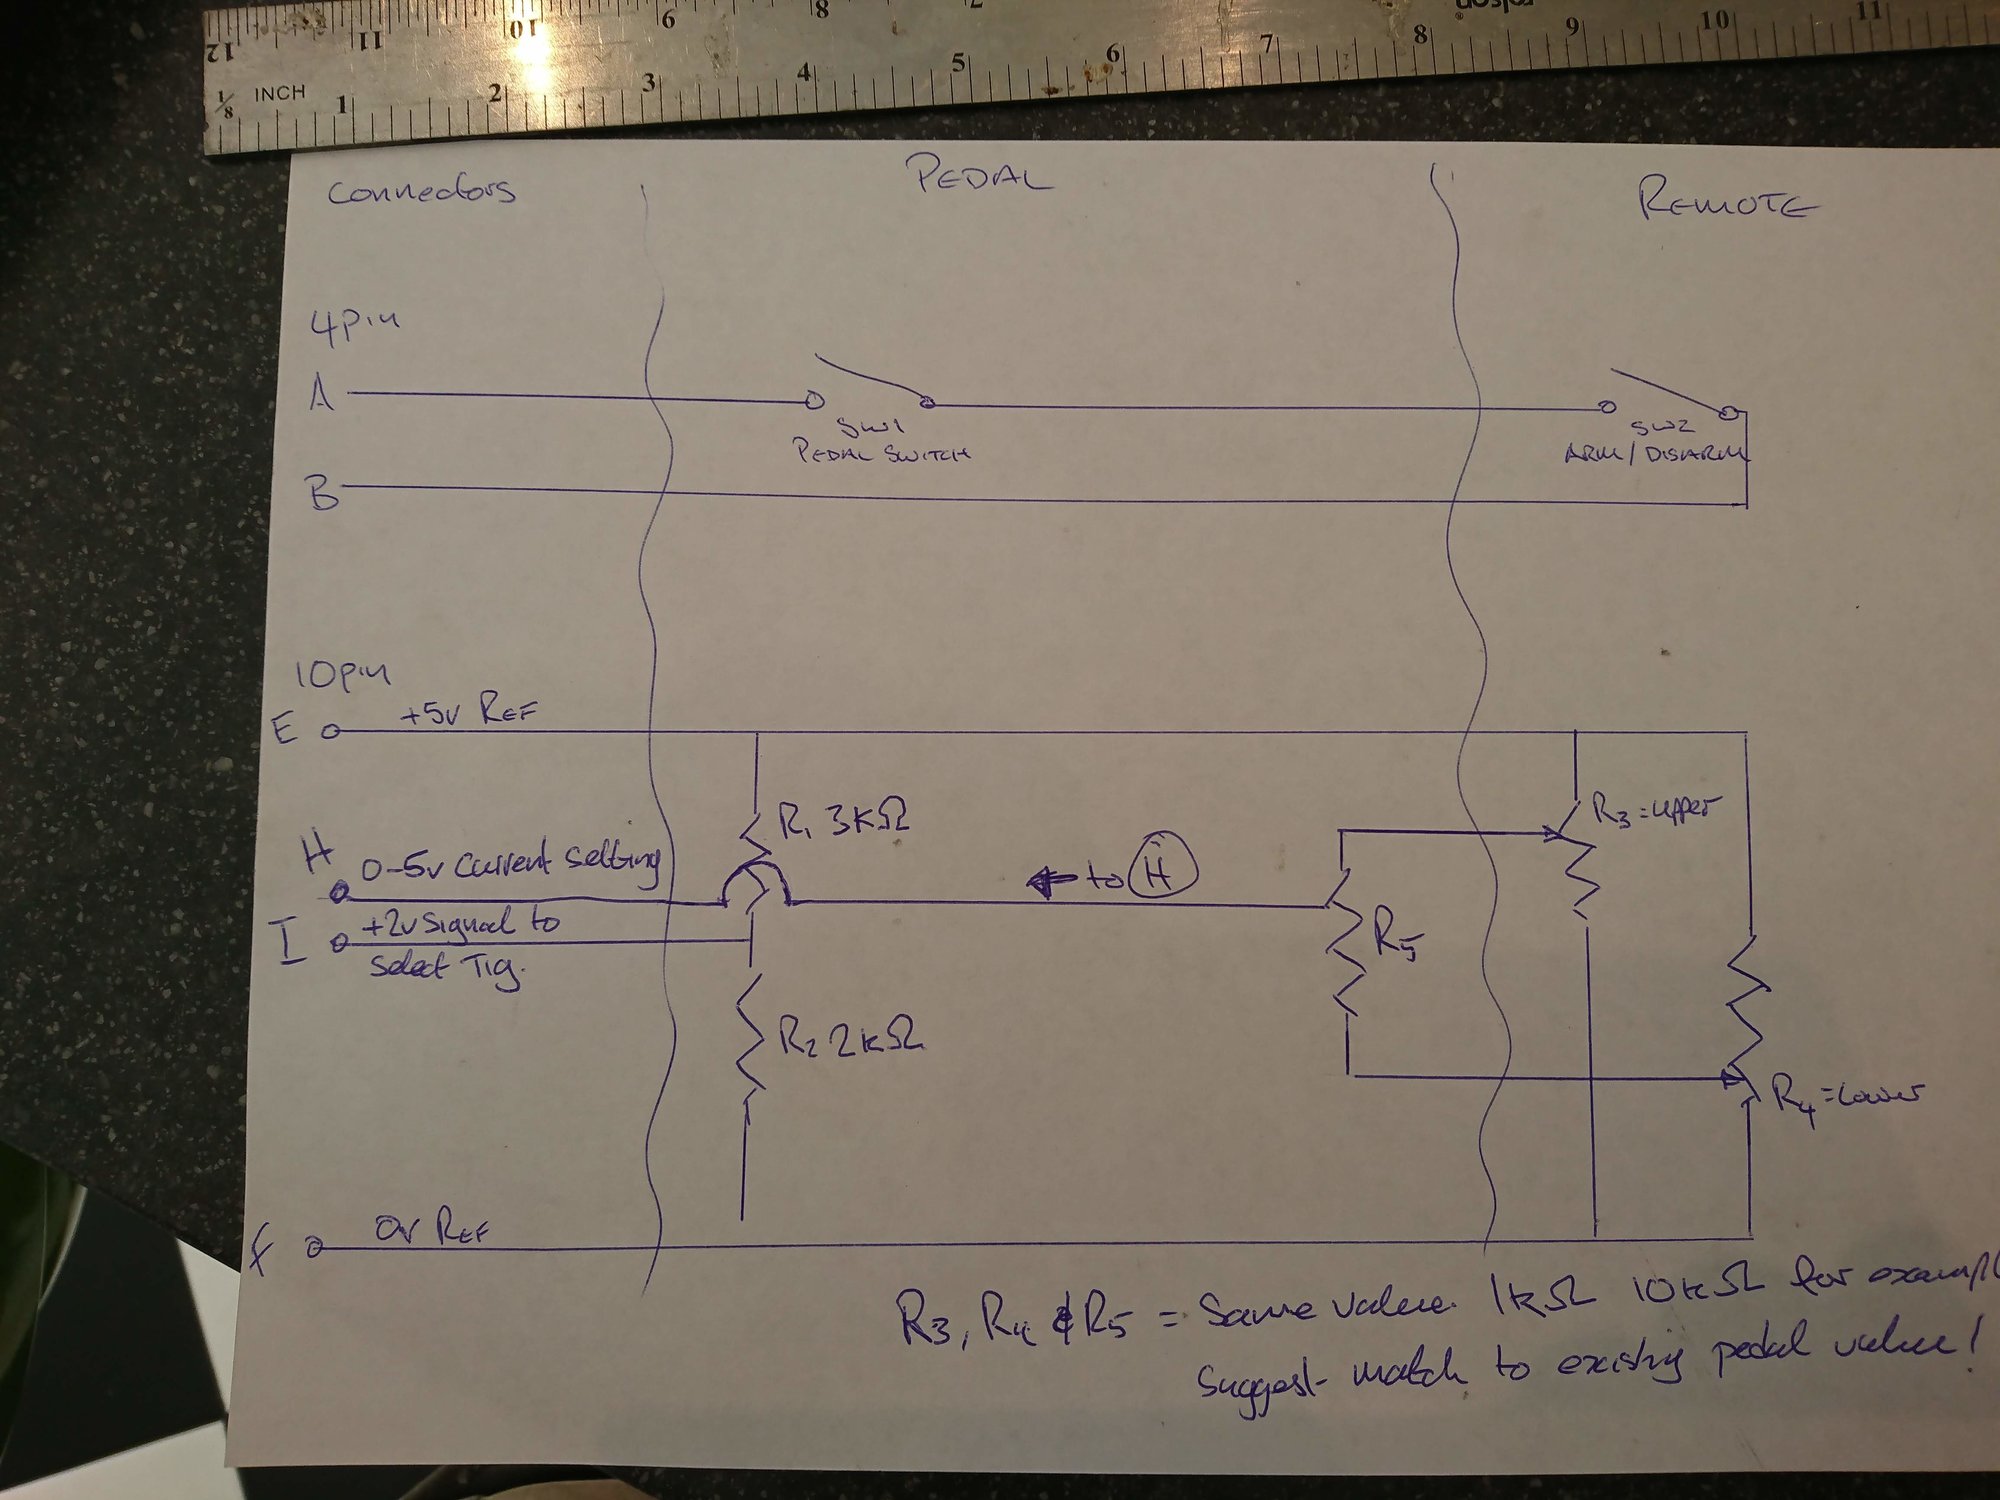 12 11 10 9 8 7
rolson
1/8 INCH 1 2 3 4 5 6 7 8 9 10 11
Connectors
PEDAL
REMOTE
4pin
A
SW1
PEDAL SWITCH
SW2
ARM/DISARM
B
10pin
E +5v REF
R1 3kΩ
R3=upper
H 0-5v Current Setting
← to H
I +2v Signal to
Select Tig.
R5
R2 2kΩ
R4=Lower
F 0v REF
R3, R4 & R5 = Same value. 1kΩ 10kΩ for
Suggest match to existing pedal value!